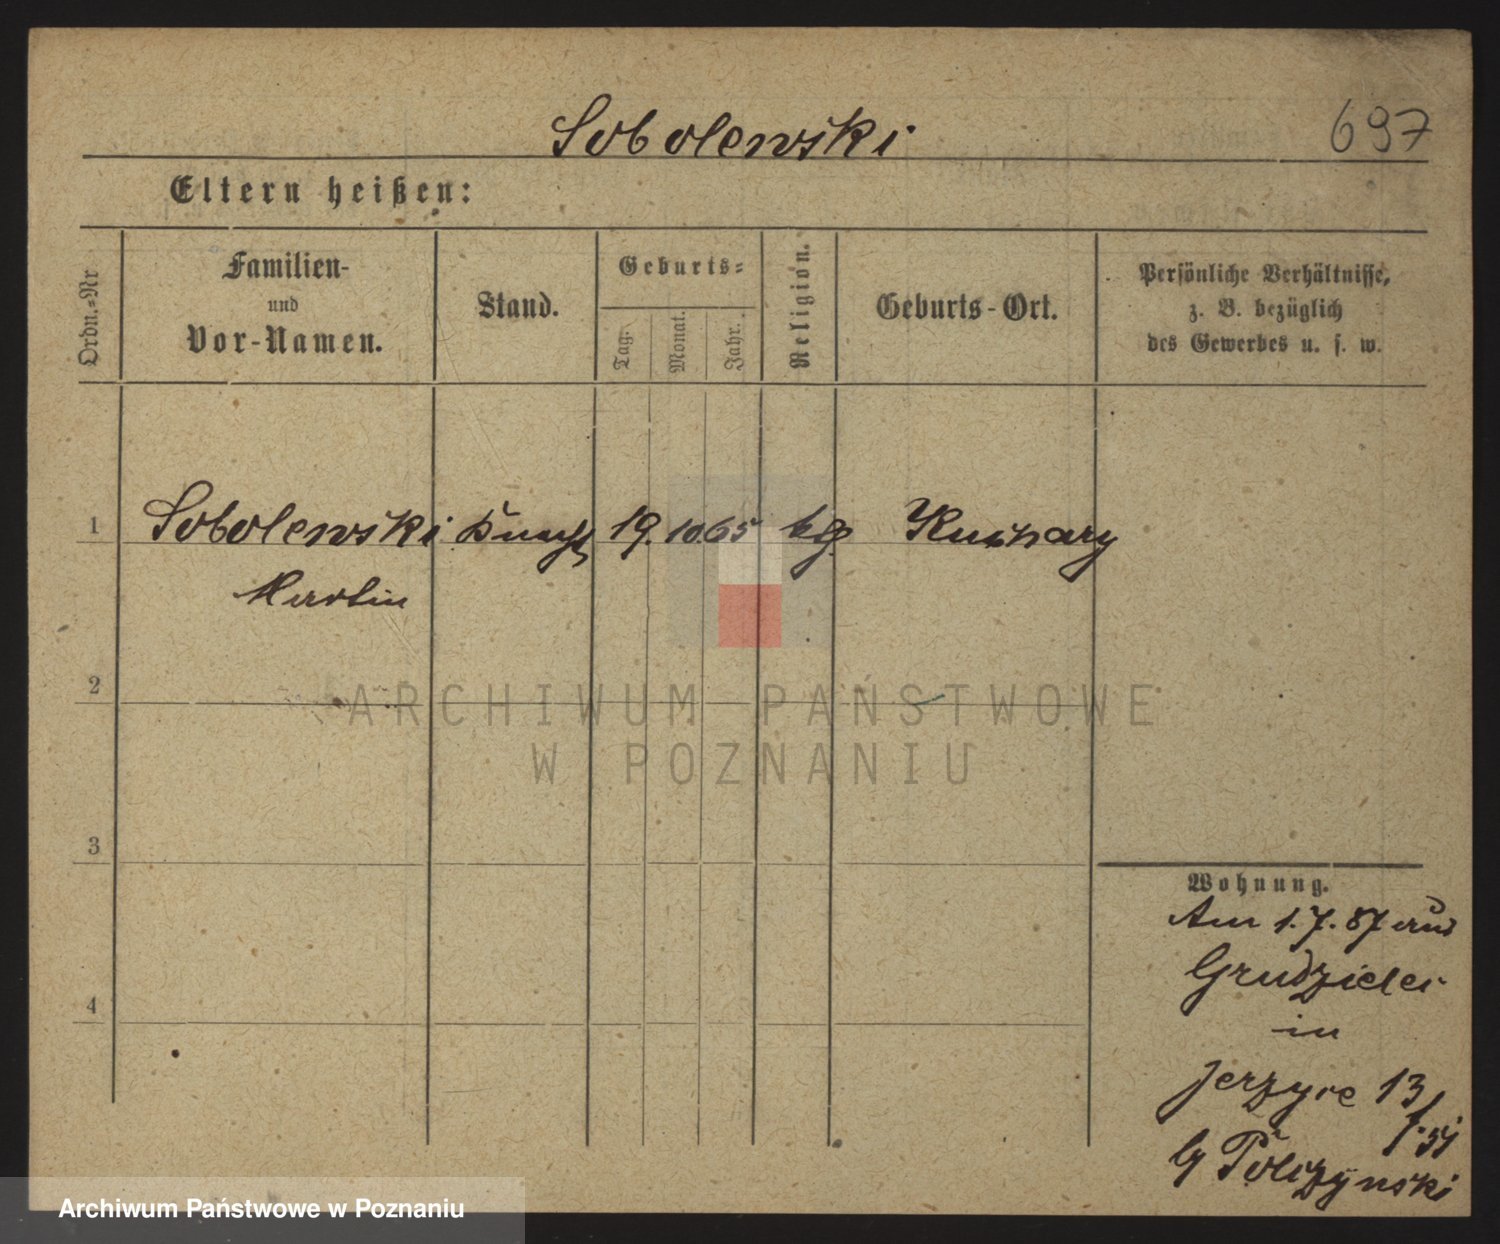 Sobolewski
697
Eltern heißen:
Ordn.-Nr
Familien-
und
Vor-Namen.
Stand.
Geburts-
Tag.
Monat.
Jahr.
Religion.
Geburts-Ort.
Persönliche Verhältnisse,
z. B. bezüglich
des Gewerbes u. s. w.
1 Sobolewski Knecht 19. 10. 65 kg Kuchary
Martin
2
3
4
Wohnung.
Am 1.7.87 aus
Grudzielec
in
Jerzyce 13
Archiwum Państwowe w Poznaniu
ARCHIWUM PAŃSTWOWE
W POZNANIU